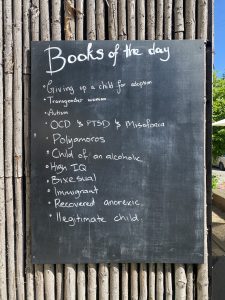 Books of the day
• Giving up a child for adoption
• Transgender woman
• Autism
• OCD & PTSD & Misofonia
• Polyamorous
• Child of an alcoholic
• High IQ
• Bixesual
• Immigrant
• Recovered anorexic
• Illegitimate child